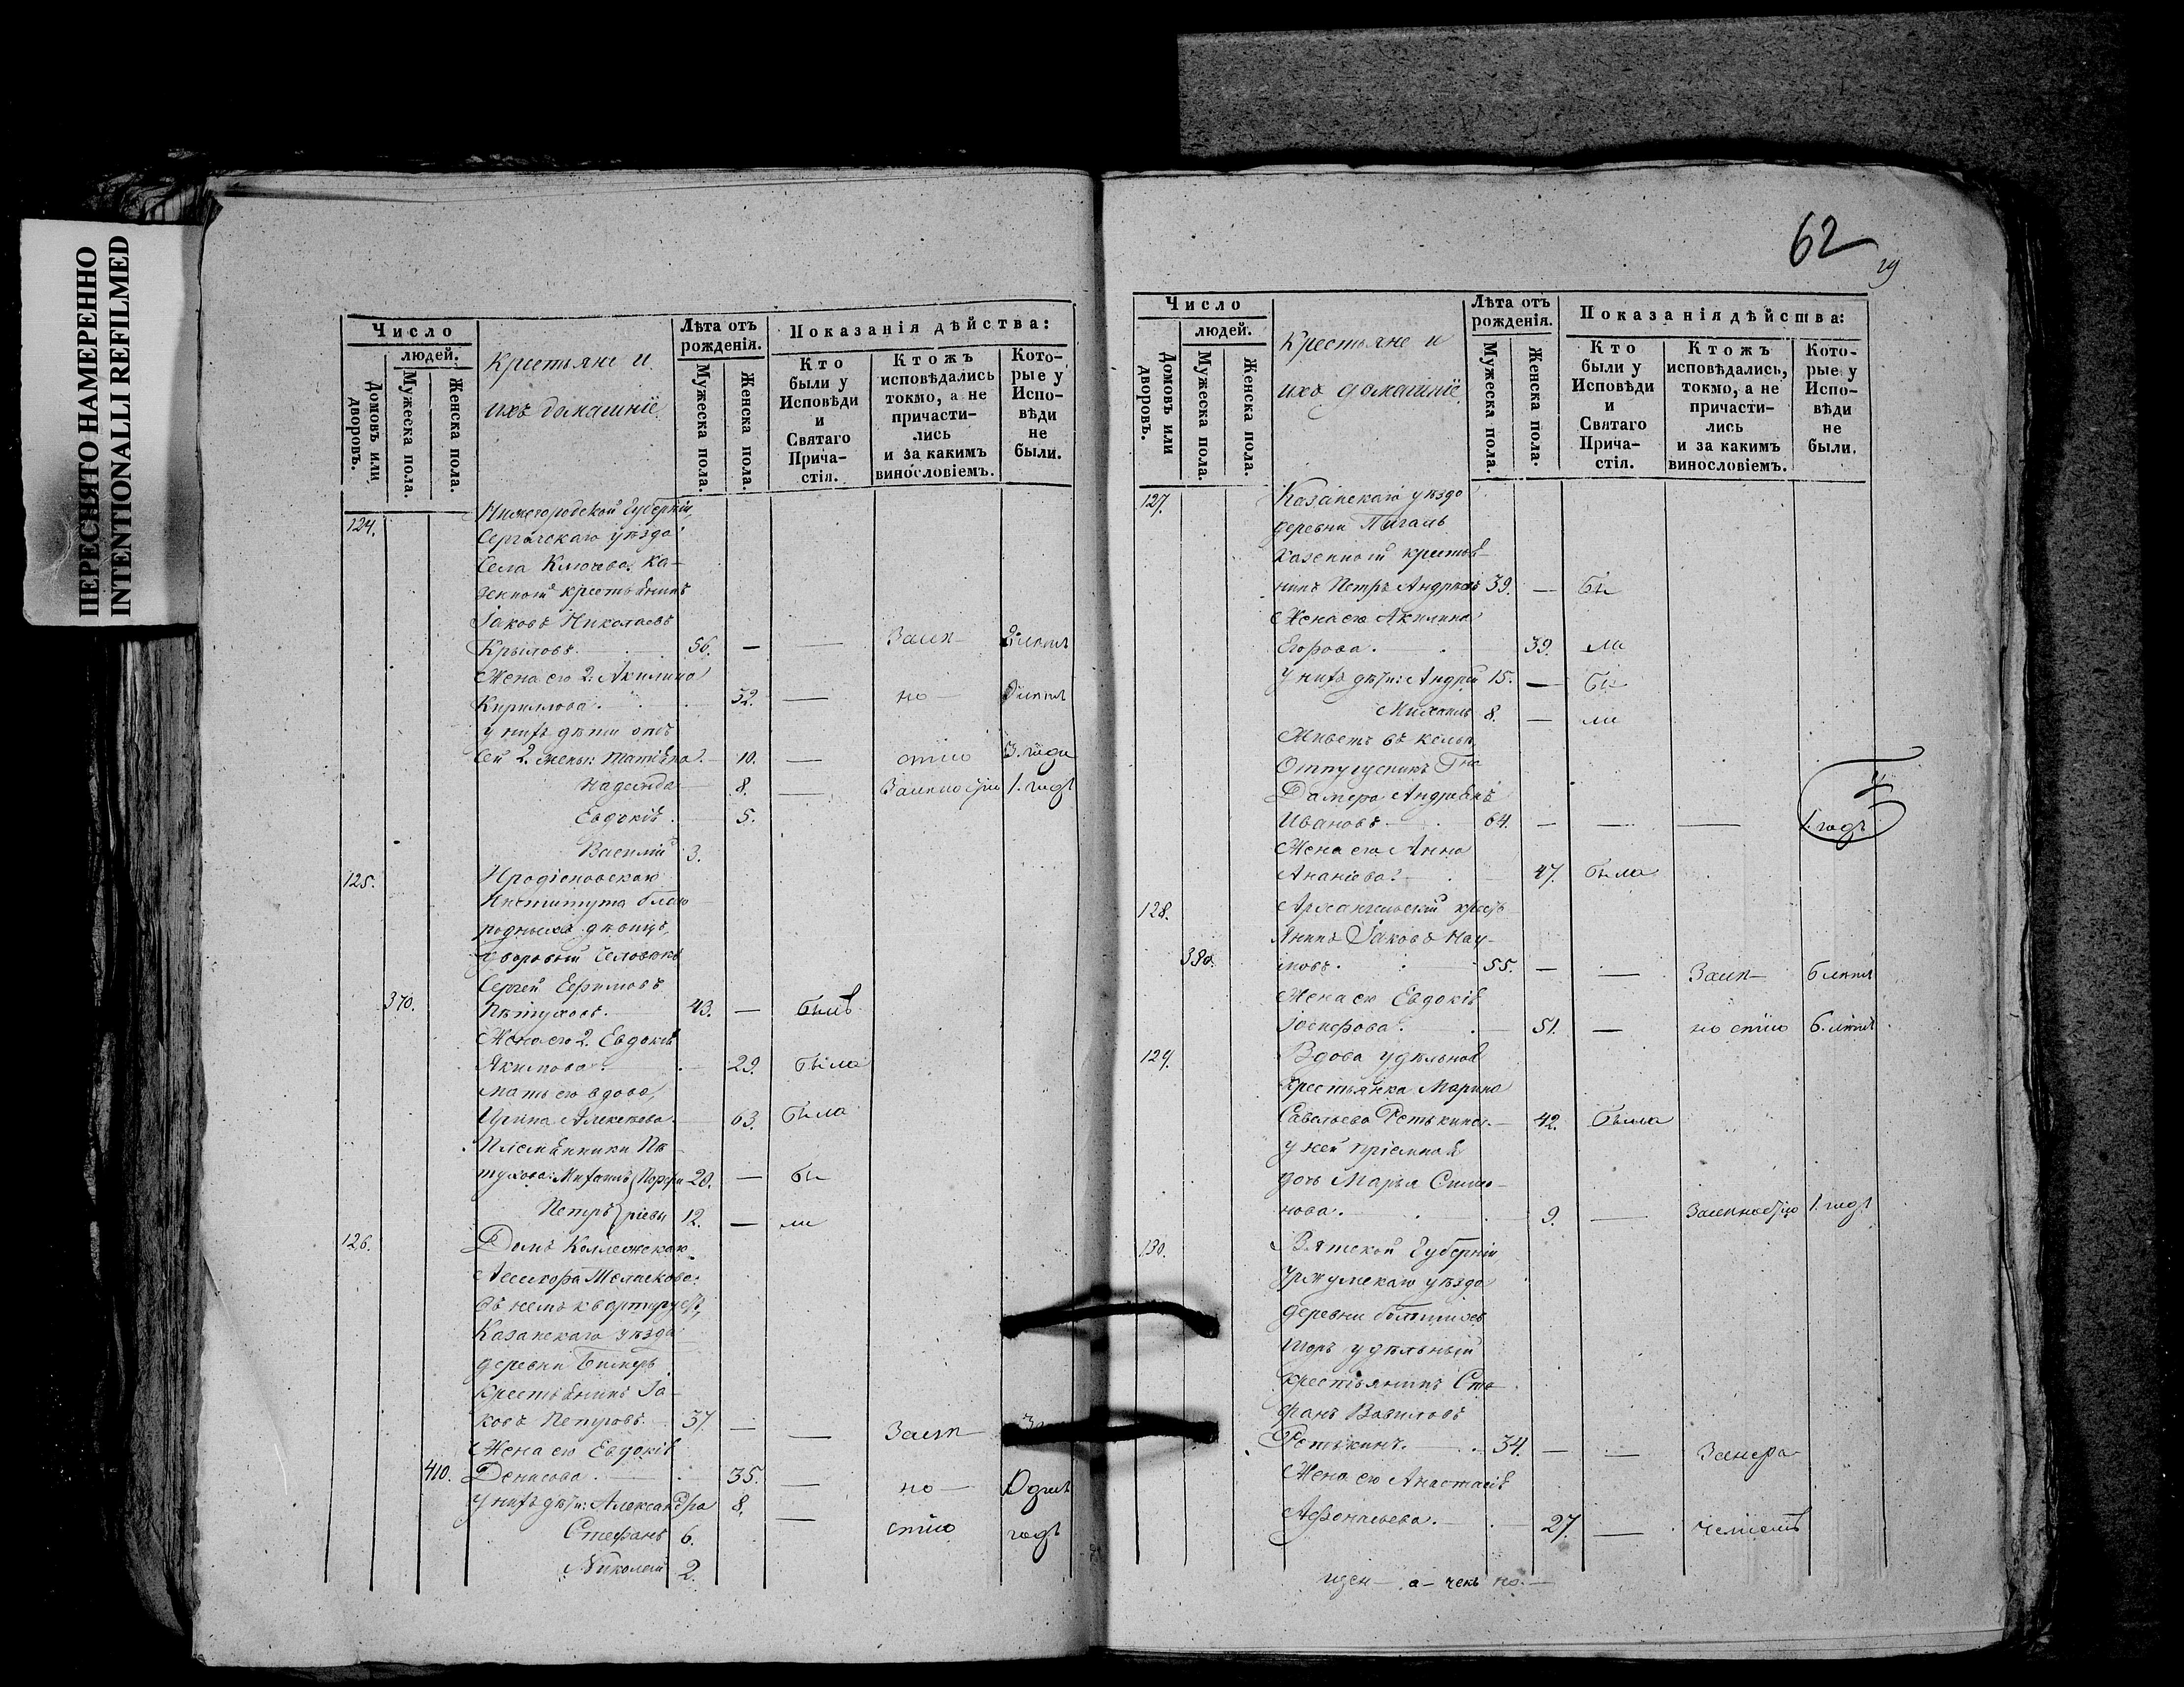 ПЕРЕСНЯТО НАМЕРЕННО
INTENTIONALLI REFILMED
Число
людей.
Домовъ или дворовъ.
Мужеска пола.
Женска пола.
Крестьяне и
ихъ домашніе.
Лѣта отъ
рожденія.
Мужеска пола.
Женска пола.
Показанія дѣйства:
Кто
были у
Исповѣди
и
Святаго
Прича-
стія.
Ктожъ
исповѣдались
токмо, а не
причасти-
лись
и за какимъ
винословіемъ.
Кото-
рые у
Испо-
вѣди
не
были.
124. Нижегородской Губерніи,
Сергачскаго уѣзда
Села Ключева. Ка-
зенной крестьянинъ
Іаковъ Николаевъ
Крыловъ. 56. — — Заип-
Жена его 2: Акилина
Кирилова. 52. — но —
у нихъ дѣти отъ
сей 2. жены: Татіяна. 10. — стію 3. года
Надежда 8. — 1. годъ
Евдокія. 5.
Василій 3.
125. Родіоновскаго
Института благо-
родныхъ дѣвицъ,
дворовый человѣкъ
Сергей Ефимовъ
370. Пѣтуховъ. 43. — былъ
Жена его 2. Евдокія
Якимова. 29. была
Мать его вдова,
Ирина Алексѣева. 63. была
Племянники Пѣ-
тухова: Михаилъ Порфи- 20. — бы
Петръ ріевы 12. — ли
126. Домъ Коллежскаго
Асессора
въ немъ квартируетъ,
Казанскаго уѣзда
деревни Бимерь
крестьянинъ Іа-
ковъ Петровъ. 37. — —
Жена его Евдокія
410. Денисова. 35. — но — Одинъ
у нихъ дѣти: Александра 8. — стію годъ
Стефанъ 6.
Николай 2.
62
Число
людей.
Домовъ или дворовъ.
Мужеска пола.
Женска пола.
Крестьяне и
ихъ домашніе.
Лѣта отъ
рожденія.
Мужеска пола.
Женска пола.
Показанія дѣйства:
Кто
были у
Исповѣди
и
Святаго
Прича-
стія.
Ктожъ
исповѣдались,
токмо, а не
причасти-
лись
и за какимъ
винословіемъ.
Кото-
рые у
Испо-
вѣди
не
были.
127. Казанскаго уѣзда
деревни
казенный крестья-
нинъ Петръ Андреевъ 39. — бы
Жена его Акилина
Егорова. 39. ли
У нихъ дѣти: Андрей 15. — бы
Михаилъ 8. — ли
Живетъ въ кельи
Отпущеникъ Гна
Андреянъ
Ивановъ. 64. — — — 1. годъ
Жена его Анна
Ананіева. 47. была
128. Архангельскій кресть-
янинъ Іаковъ Нау-
380. мовъ. 55. — —
Жена его Евдокія
Іосифова. 51. — но стію
129. Вдова удѣльная
крестьянка Марина
Савельева 42. была
у ней пріемная
дочь Марья Симо-
нова. 9. — 1. годъ
130. Вятской Губерніи,
Уржумскаго уѣзда
деревни
удѣльный
крестьянинъ Сте-
фанъ Вавиловъ
34. — —
Жена его Анастасія
Афонасьева. 27. —